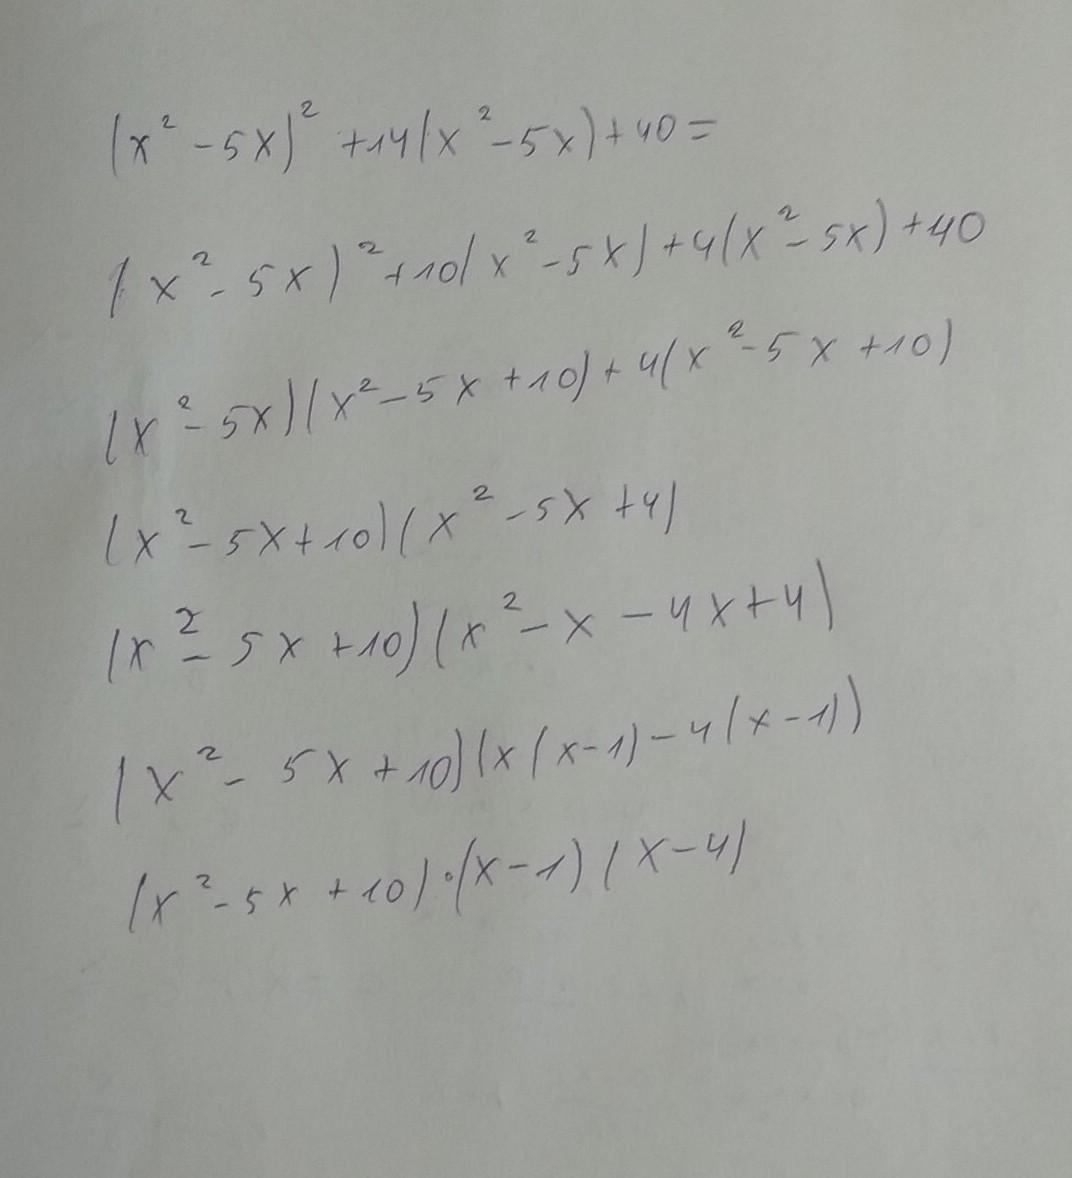 (x² -5x)² +14(x²-5x)+40=
(x²- 5x)²+10(x²-5x)+4(x²-5x)+40
(x²-5x)(x²-5x+10)+4(x²-5x+10)
(x²-5x+10)(x²-5x+4)
(x²-5x+10)(x²-x-4x+4)
(x²-5x+10)(x(x-1)-4(x-1))
(x²-5x+10)·(x-1)(x-4)